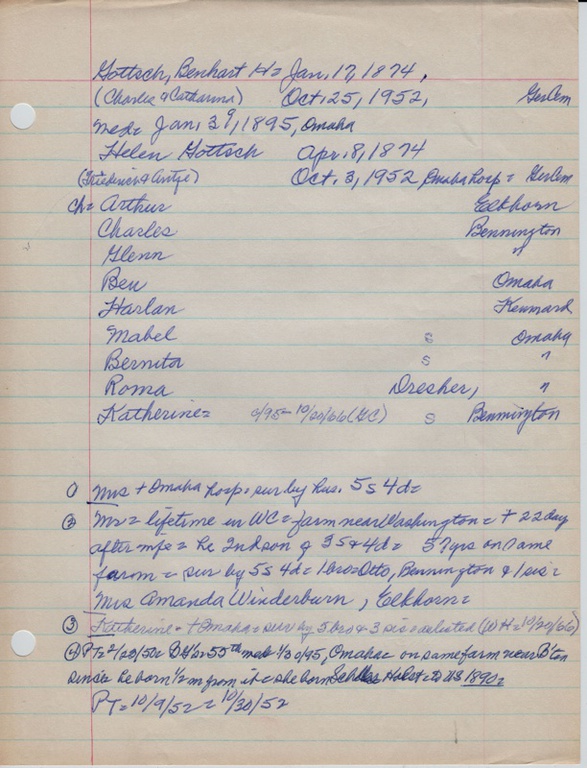 Gottsch, Benhart H= Jan. 17, 1874,
(Charlie & Catharina) Oct. 25, 1952, GerLem
med= Jan. 30, 1895, Omaha
Helen Gottsch Apr. 8, 1874
(Friederich & Antje) Oct. 3, 1952, Omaha hosp = GerLem
ch= Arthur Elkhorn
Charles Bennington
Glenn "
Ben Omaha
Harlan Kennard
Mabel S Omaha
Bernita S "
Roma Dresher, "
Katherine= /95= 10/20/66 (GC) S Bennington
① Mrs + Omaha hosp= sur by hus. 5s 4d=
② Mr= lifetime in WC= farm near Washington= + 22 day
after mfe= he 2nd son of 3s & 4d= 57 yrs on same
farm= sur by 5s 4d= 1 bro= Otto, Bennington & 1 sis=
Mrs Amanda Winderburn, Elkhorn=
③ Katherine= + Omaha= sur by 5 bro & 3 sis= (WH=10/20/66)
④ PT= 2/20/50= 55th 1/30/95, Omaha= on same farm near B'ton
since he born 1/2 m from it= she born Holst= to US 1890=
PT= 10/9/52= 10/30/52